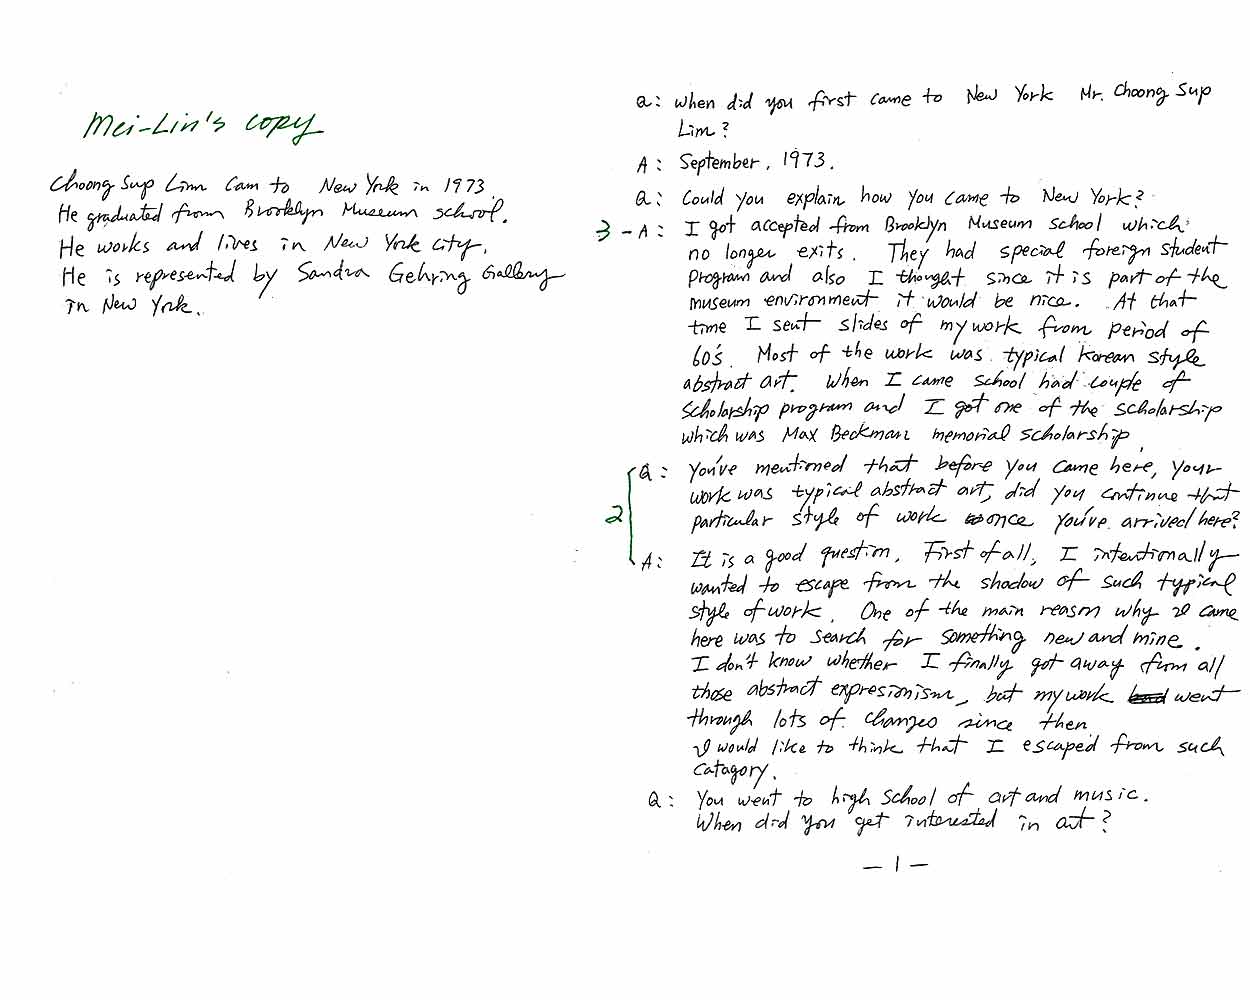 Mei-Lin's copy
Choong Sup Lim Cam to New York in 1973.
He graduated from Brooklyn Museum school.
He works and lives in New York city.
He is represented by Sandra Gehring Gallery
in New York.
Q: When did you first came to New York Mr. Choong Sup
Lim?
A: September, 1973.
Q: Could you explain how you came to New York?
3 - A: I got accepted from Brooklyn Museum School which
no longer exits. They had special foreign student
Program and also I thought since it is part of the
museum environment it would be nice. At that
time I sent slides of my work from period of
60's. Most of the work was typical Korean style
abstract art. When I came school had couple of
Scholarship program and I got one of the scholarship
which was Max Beckman memorial scholarship.
2
Q: You've mentioned that before you came here, your
work was typical abstract art, did you continue that
particular style of work once you've arrived here?
A: It is a good question. First of all, I intentionally
wanted to escape from the shadow of such typical
style of work. One of the main reason why I came
here was to search for something new and mine.
I don't know whether I finally got away from all
those abstract expresionism, but my work went
through lots of changes since then.
I would like to think that I escaped from such
catagory.
Q: You went to high school of art and music.
When did you get interested in art?
— 1 —